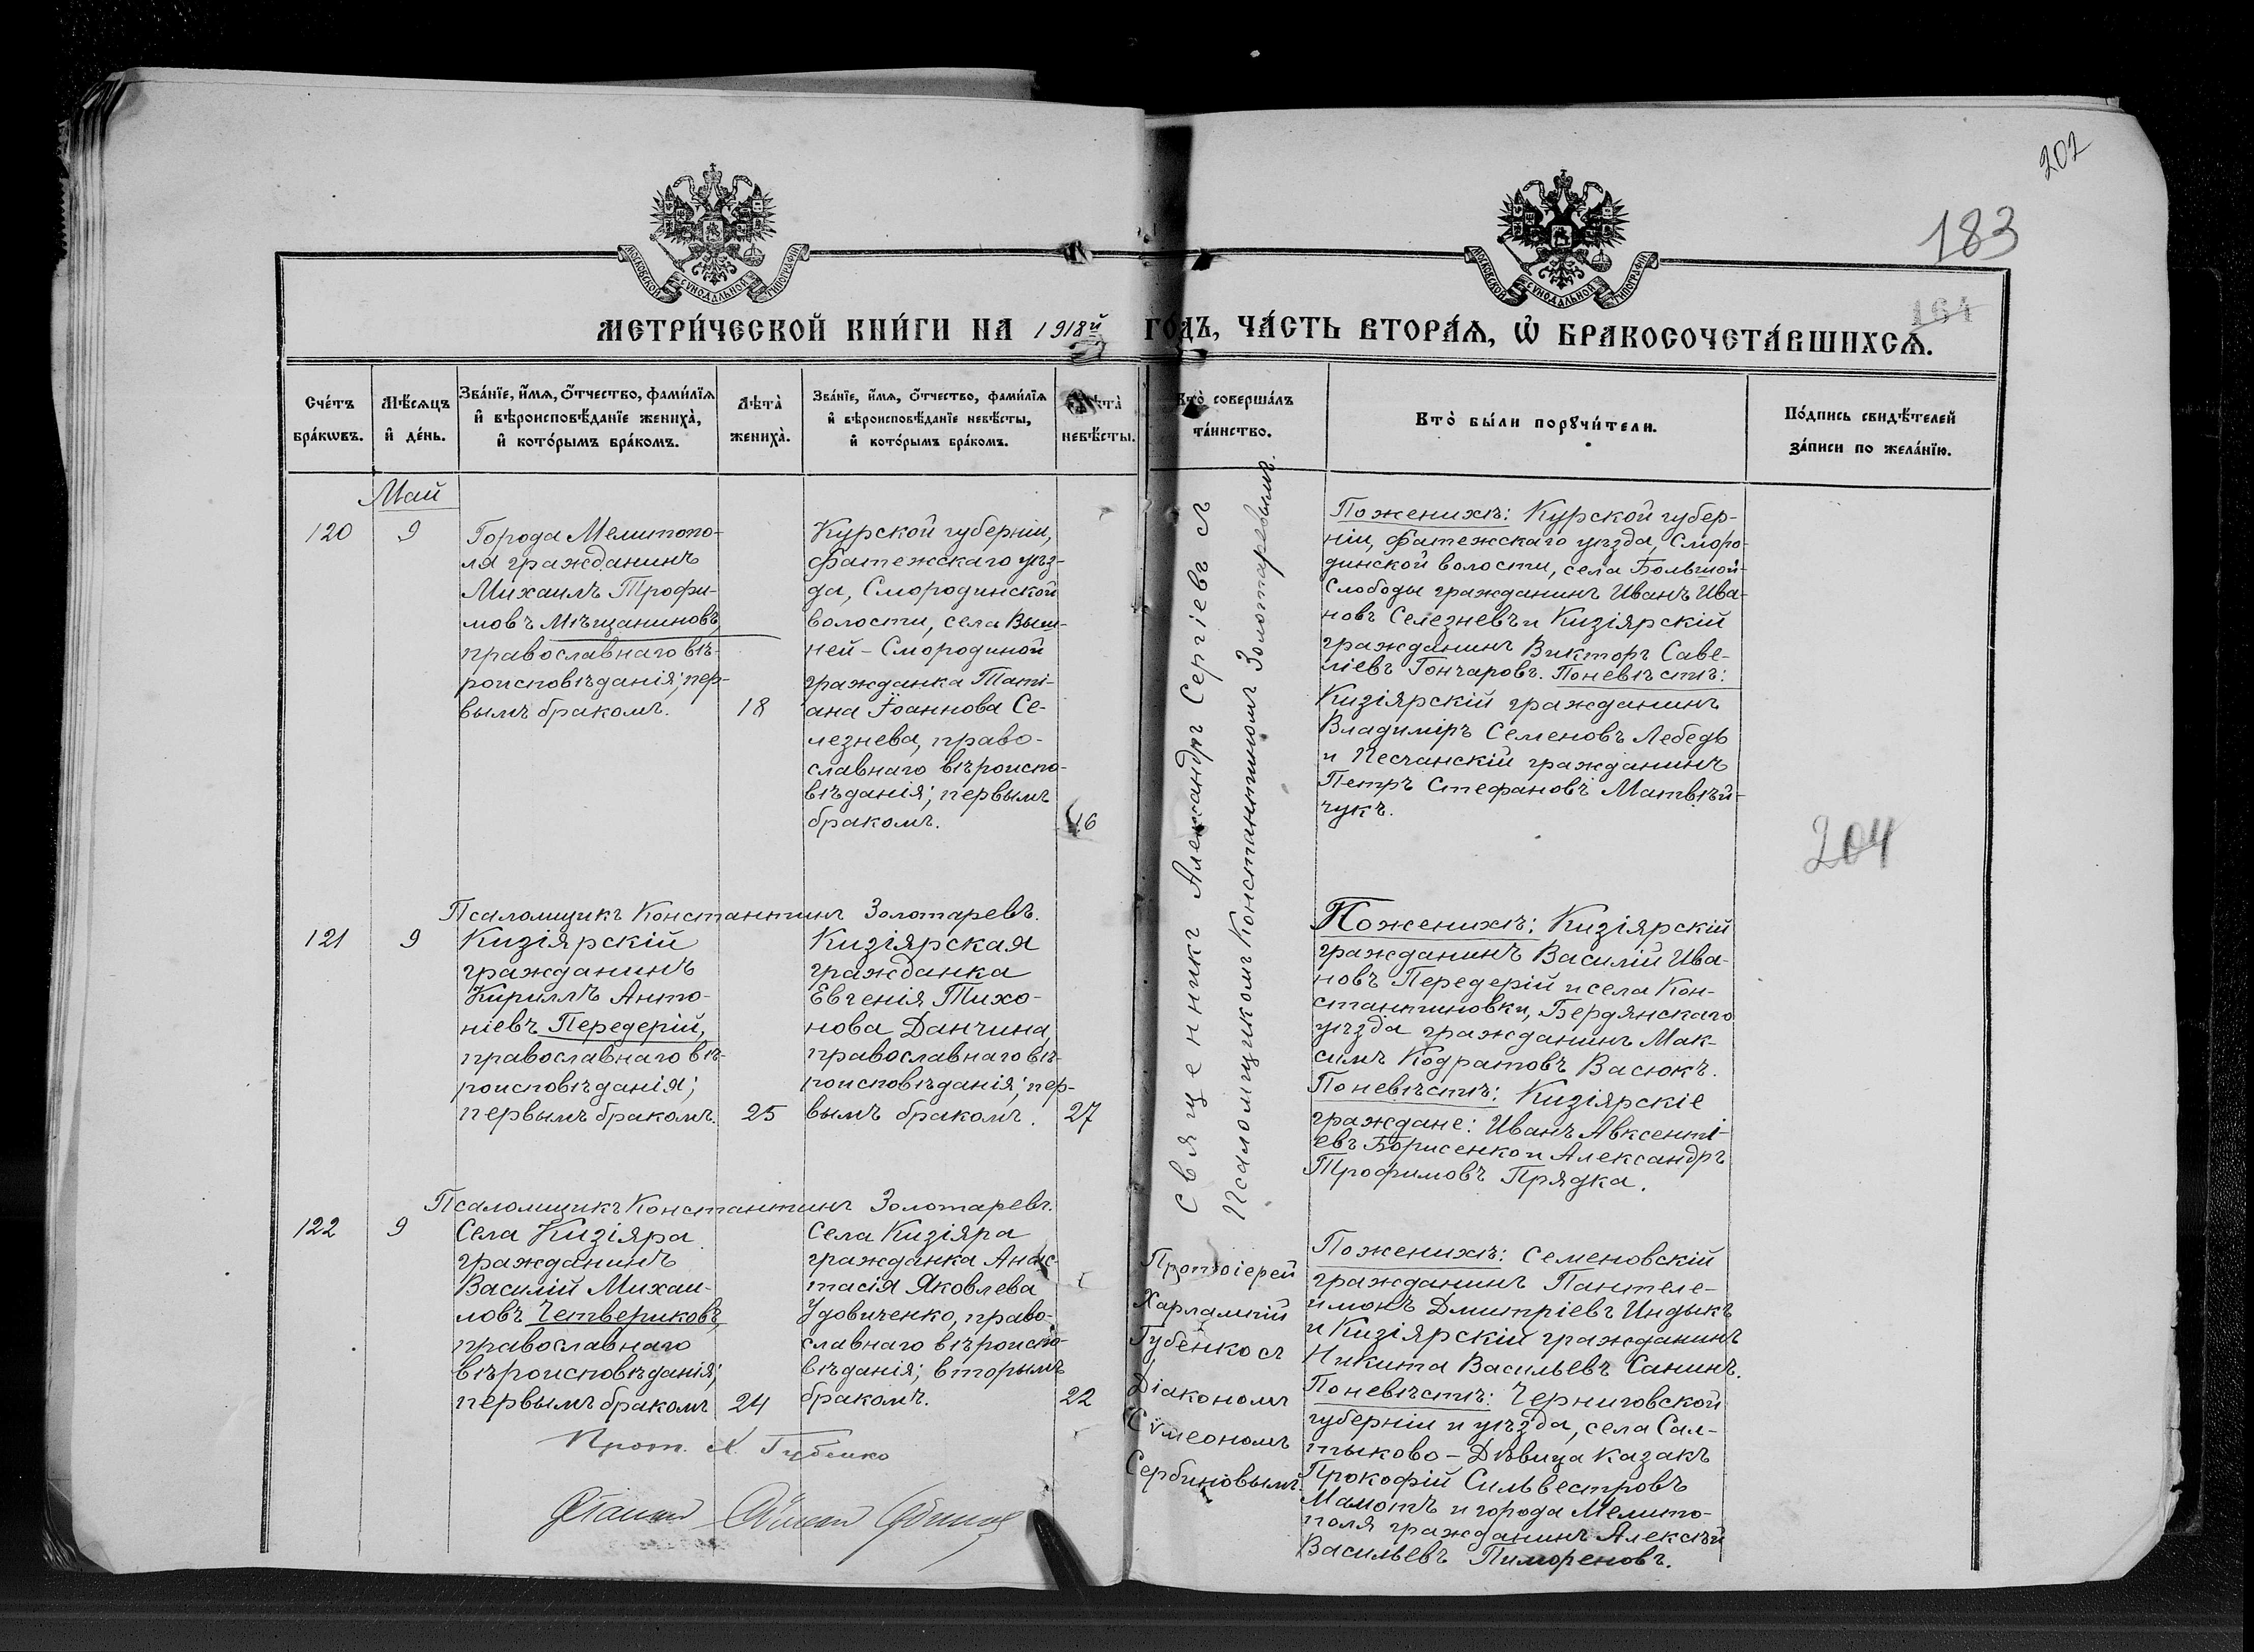 202
183
164
МОСКОВСКОЙ СѴНОДАЛЬНОЙ ТИПОГРАФІИ
МОСКОВСКОЙ СѴНОДАЛЬНОЙ ТИПОГРАФІИ
МЕТРИ́ЧЕСКОЙ КНИ́ГИ НА 1918й ГО́ДЪ, ЧА́СТЬ ВТОРА́Ѧ, Ѡ҆ БРАКОСОЧЕТА́ВШИХСѦ.
Сче́тъ
бра́кѡвъ.
Мѣ́сяцъ
и҆ де́нь.
Зва́нїе, и҆́мя, о҆́тчество, фами́лїя
и҆ вѣроисповѣ́данїе жениха̀,
и҆ кото́рымъ бра́комъ.
Лѣта̀
жениха̀.
Зва́нїе, и҆́мя, о҆́тчество, фами́лїя
и҆ вѣроисповѣ́данїе невѣ́сты,
и҆ кото́рымъ бра́комъ.
Лѣта̀
невѣ́сты.
Кто̀ соверша́лъ
та́инство.
Кто̀ бы́ли порꙋчи́тели.
По́дпись свидѣ́телей
за́писи по жела́нїю.
Май
120
9
Города Мелитопо-
ля гражданинъ
Михаилъ Трофи-
мовъ Мѣщаниновъ,
православнаго вѣ-
роисповѣданія; пер-
вымъ бракомъ.
18
Курской губерніи,
Фатежскаго уѣз-
да, Смородинской
волости, села Выш-
ней-Смородиной
гражданка Таті-
ана Іоаннова Се-
лезнева, право-
славнаго вѣроиспо-
вѣданія; первымъ
бракомъ.
16
Священникъ Александръ Сергіевъ съ
Псаломщикомъ Константиномъ Золотаревымъ.
По женихѣ: Курской губер-
ніи, Фатежскаго уѣзда, Сморо-
динской волости, села Большой-
Слободы гражданинъ Иванъ Ива-
новъ Селезневъ и Кизіярскій
гражданинъ Викторъ Саве-
ліевъ Гончаровъ. По невѣстѣ:
Кизіярскій гражданинъ
Владиміръ Семеновъ Лебедь
и Песчанскій гражданинъ
Петръ Стефановъ Матвѣй-
чукъ.
204
Псаломщикъ Константинъ Золотаревъ.
121
9
Кизіярскій
гражданинъ
Кириллъ Анто-
ніевъ Передерій,
православнаго вѣ-
роисповѣданія;
первымъ бракомъ.
25
Кизіярская
гражданка
Евгенія Тихо-
нова Данчина,
православнаго вѣ-
роисповѣданія; пер-
вымъ бракомъ.
27
По женихѣ: Кизіярскій
гражданинъ Василій Ива-
новъ Передерій и села Кон-
стантиновки, Бердянскаго
уѣзда гражданинъ Мак-
симъ Кодратовъ Васюкъ.
По невѣстѣ: Кизіярскіе
граждане: Иванъ Авксенті-
евъ Борисенко и Александръ
Трофимовъ Прядка.
Псаломщикъ Константинъ Золотаревъ.
122
9
Села Кизіяра
гражданинъ
Василій Михаи-
ловъ Четвериковъ,
православнаго
вѣроисповѣданія;
первымъ бракомъ
24
Села Кизіяра
гражданка Анас-
тасія Яковлева
Удовиченко, право-
славнаго вѣроиспо-
вѣданія; вторымъ
бракомъ.
22
Протоіерей
Харлампій
Губенко съ
Діакономъ
Сѵмеономъ
Сербиновымъ.
По женихѣ: Семеновскій
гражданинъ Пантеле-
имонъ Дмитріевъ Индыкъ
и Кизіярскій гражданинъ
Никита Васильевъ Санинъ.
По невѣстѣ: Черниговской
губерніи и уѣзда, села Сал-
тыково-Дѣвица казакъ
Прокофій Сильвестровъ
Мамотъ и города Мелито-
поля гражданинъ Алексѣй
Васильевъ Пимореновъ.
Прот. Х. Губенко